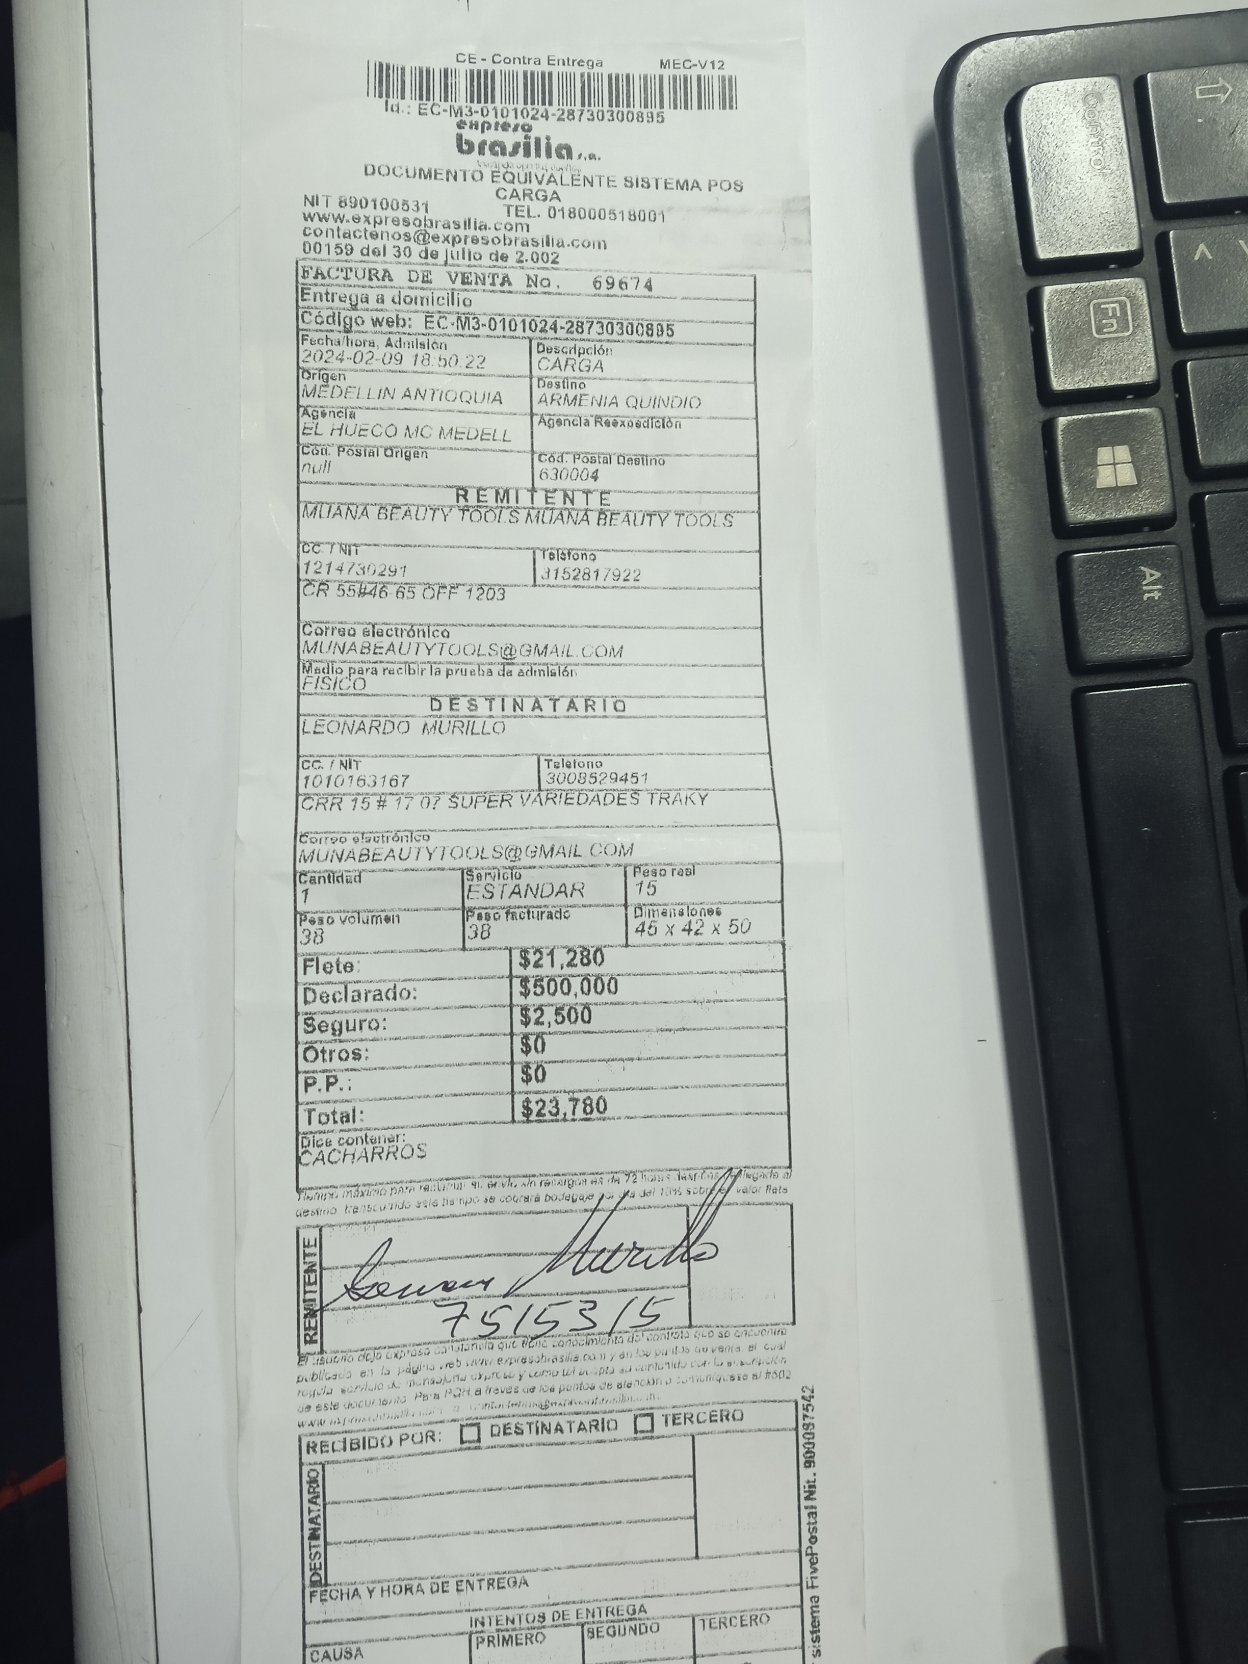 CE - Contra Entrega MEC-V12
Id.: EC-M3-0101024-28730300895
expreso
brasilia s.a.
DOCUMENTO EQUIVALENTE SISTEMA POS
CARGA
NIT 890100531 TEL. 018000518001
www.expresobrasilia.com
contactenos@expresobrasilia.com
00159 del 30 de julio de 2.002
FACTURA DE VENTA No. 69674
Entrega a domicilio
Código web: EC-M3-0101024-28730300895
Fecha/hora, Admisión Descripción
2024-02-09 18:50:22 CARGA
Origen Destino
MEDELLIN ANTIOQUIA ARMENIA QUINDIO
Agencia Agencia Reexpedición
EL HUECO MC MEDELL
Cód. Postal Origen Cód. Postal Destino
null 630004
REMITENTE
MUANA BEAUTY TOOLS MUANA BEAUTY TOOLS
CC. / NIT Teléfono
1214730291 3152817922
CR 55#46 65 OFF 1203
Correo electrónico
MUNABEAUTYTOOLS@GMAIL.COM
Medio para recibir la prueba de admisión
FISICO
DESTINATARIO
LEONARDO MURILLO
CC. / NIT Teléfono
1010163167 3008529451
CRR 15 # 17 07 SUPER VARIEDADES TRAKY
Correo electrónico
MUNABEAUTYTOOLS@GMAIL.COM
Cantidad Servicio Peso real
1 ESTANDAR 15
Peso volumen Peso facturado Dimensiones
38 38 45 x 42 x 50
Flete: $21,280
Declarado: $500,000
Seguro: $2,500
Otros: $0
P.P.: $0
Total: $23,780
Dice contener:
CACHARROS
Tiempo máximo para reclamar su envío sin recargos es de 72 horas
destino, transcurrido este tiempo se cobrará bodegaje por día del 10% sobre el valor flete
REMITENTE
Murillo
7515315
El usuario deja expresa constancia que tiene conocimiento del contrato que se encuentra
publicado en la página web www.expresobrasilia.com y en los puntos de venta, el cual
regula servicio de mensajería expresa y como tal acepta su contenido con la suscripción
de este documento. Para PQR a través de los puntos de atención o comuníquese al #502
RECIBIDO POR: DESTINATARIO TERCERO
DESTINATARIO
FECHA Y HORA DE ENTREGA
INTENTOS DE ENTREGA
CAUSA PRIMERO SEGUNDO TERCERO
sistema FivePostal Nit. 900087542
Control
Fn
Alt